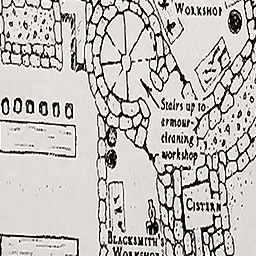 WORKSHOP
Stairs up to
armour-
cleaning
workshop
CISTERN
BLACKSMITH'S
WORKSHOP